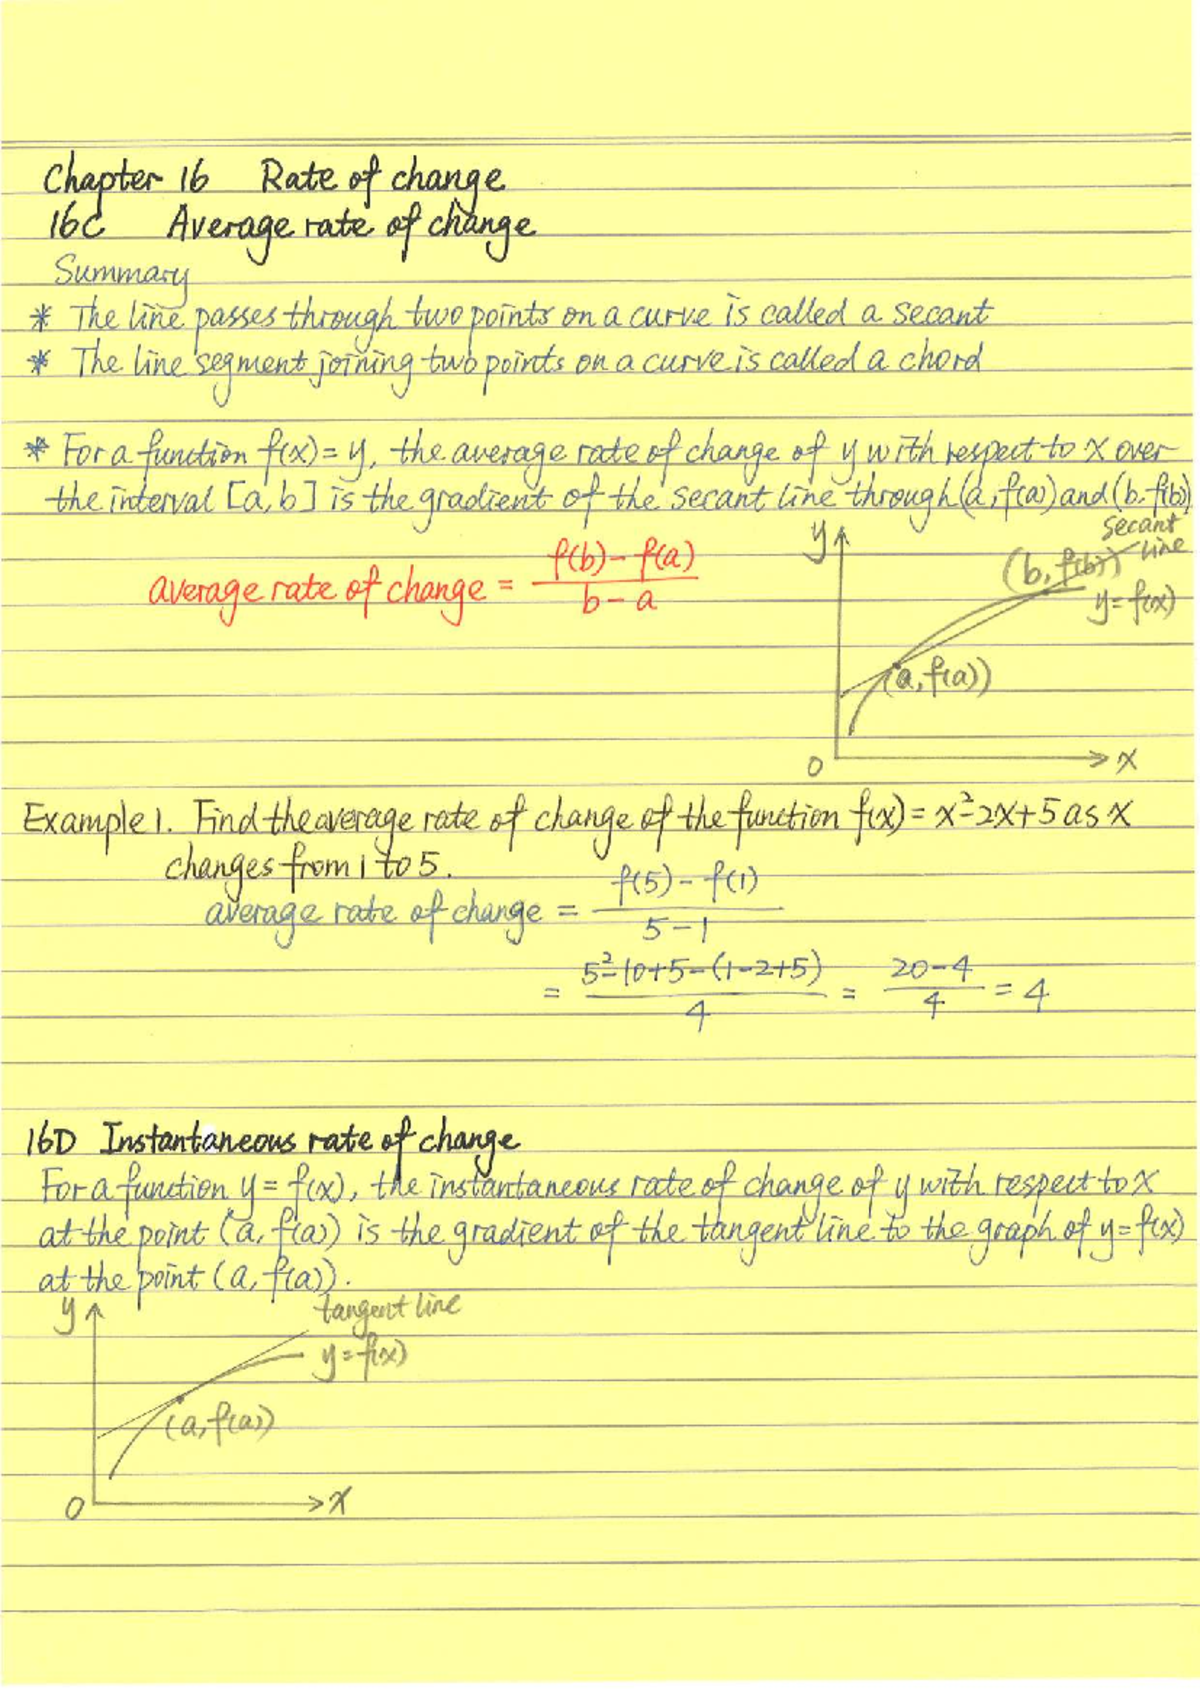 Chapter 16 Rate of change
16C Average rate of change
Summary
* The line passes through two points on a curve is called a secant
* The line segment joining two points on a curve is called a chord
* For a function f(x) = y, the average rate of change of y with respect to x over
the interval [a, b] is the gradient of the secant line through (a, f(a)) and (b, f(b))
average rate of change = f(b) - f(a) / b - a
y
secant
line
(b, f(b))
y = f(x)
(a, f(a))
0
x
Example 1. Find the average rate of change of the function f(x) = x² - 2x + 5 as x
changes from 1 to 5.
average rate of change = f(5) - f(1) / 5 - 1
= 5² - 10 + 5 - (1 - 2 + 5) / 4 = 20 - 4 / 4 = 4
16D Instantaneous rate of change
For a function y = f(x), the instantaneous rate of change of y with respect to x
at the point (a, f(a)) is the gradient of the tangent line to the graph of y = f(x)
at the point (a, f(a)).
y
tangent line
y = f(x)
(a, f(a))
0
x